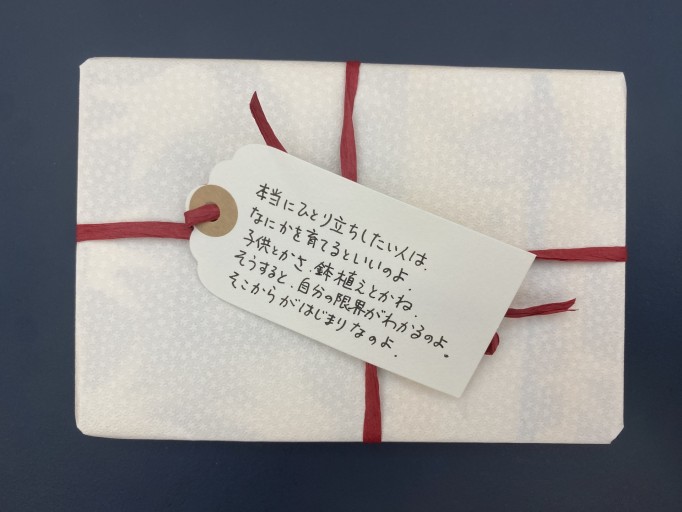 本当にひとり立ちしたい人は、
なにかを育てるといいのよ。
子供とかさ、鉢植えとかね。
そうすると、自分の限界がわかるのよ。
そこからがはじまりなのよ。